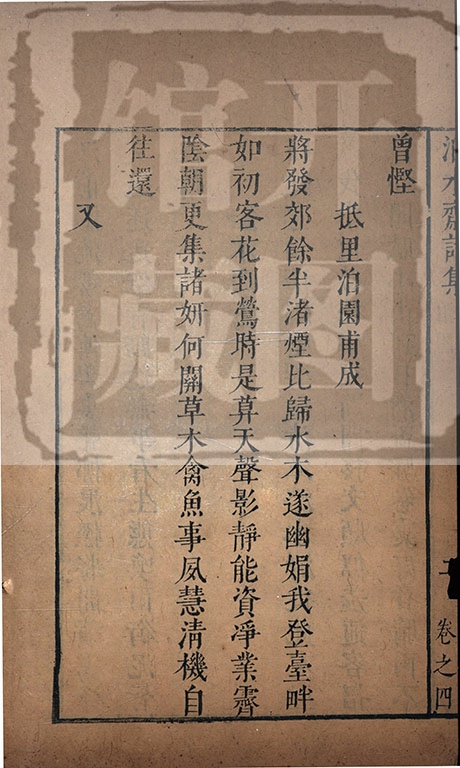 曾慳
抵里泊園甫成
將發郊餘半渚煙比歸水木遂幽娟我登臺畔
如初客花到鶯時是算天聲影靜能資淨業霽
陰朝更集諸妍何關草木禽魚事夙慧清機自
往還
又
卷之四
開圖
館藏